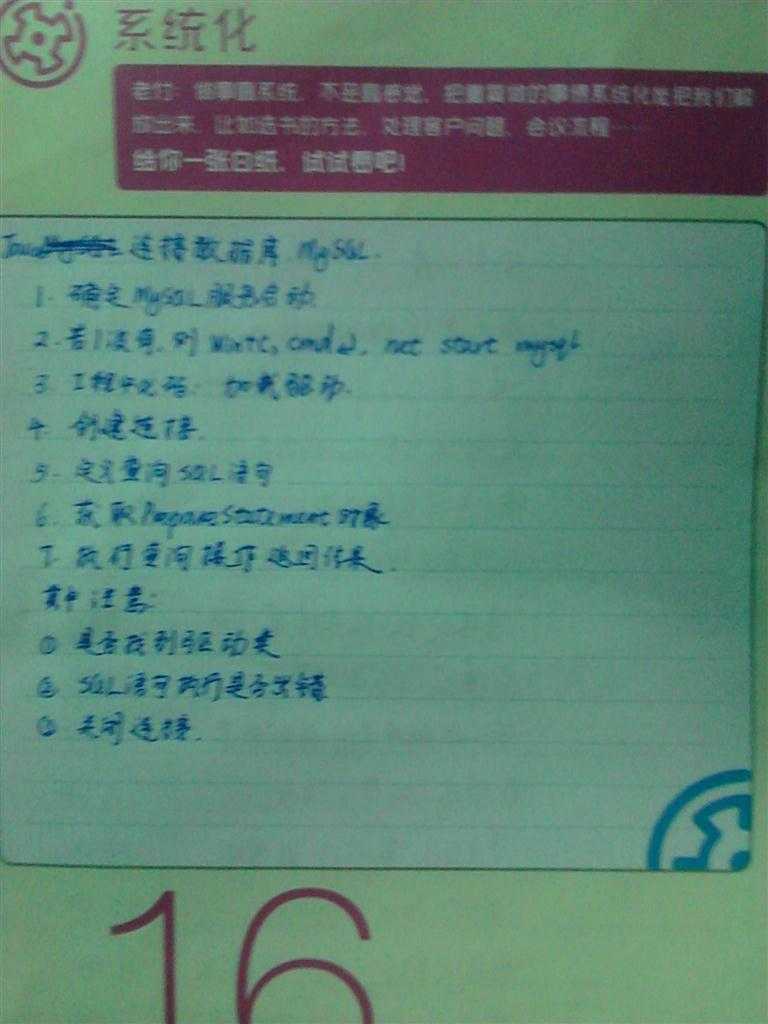 系统化
老付：做事靠系统，不是靠感觉，把重复做的事情系统化能把我们解
放出来，比如选书的方法，处理客户问题，会议流程……
给你一张白纸，试试看吧！
Java 连接数据库 MySQL.
1. 确定MySQL服务启动.
2. 若1没有,则 win+r, cmd↵, net start mysql
3. 工程中代码: 加载驱动.
4. 创建连接.
5. 定义查询SQL语句
6. 获取PrepareStatement对象
7. 执行查询操作返回结果.
其中注意:
① 是否找到驱动类
② SQL语句执行是否出错
③ 关闭连接.
16